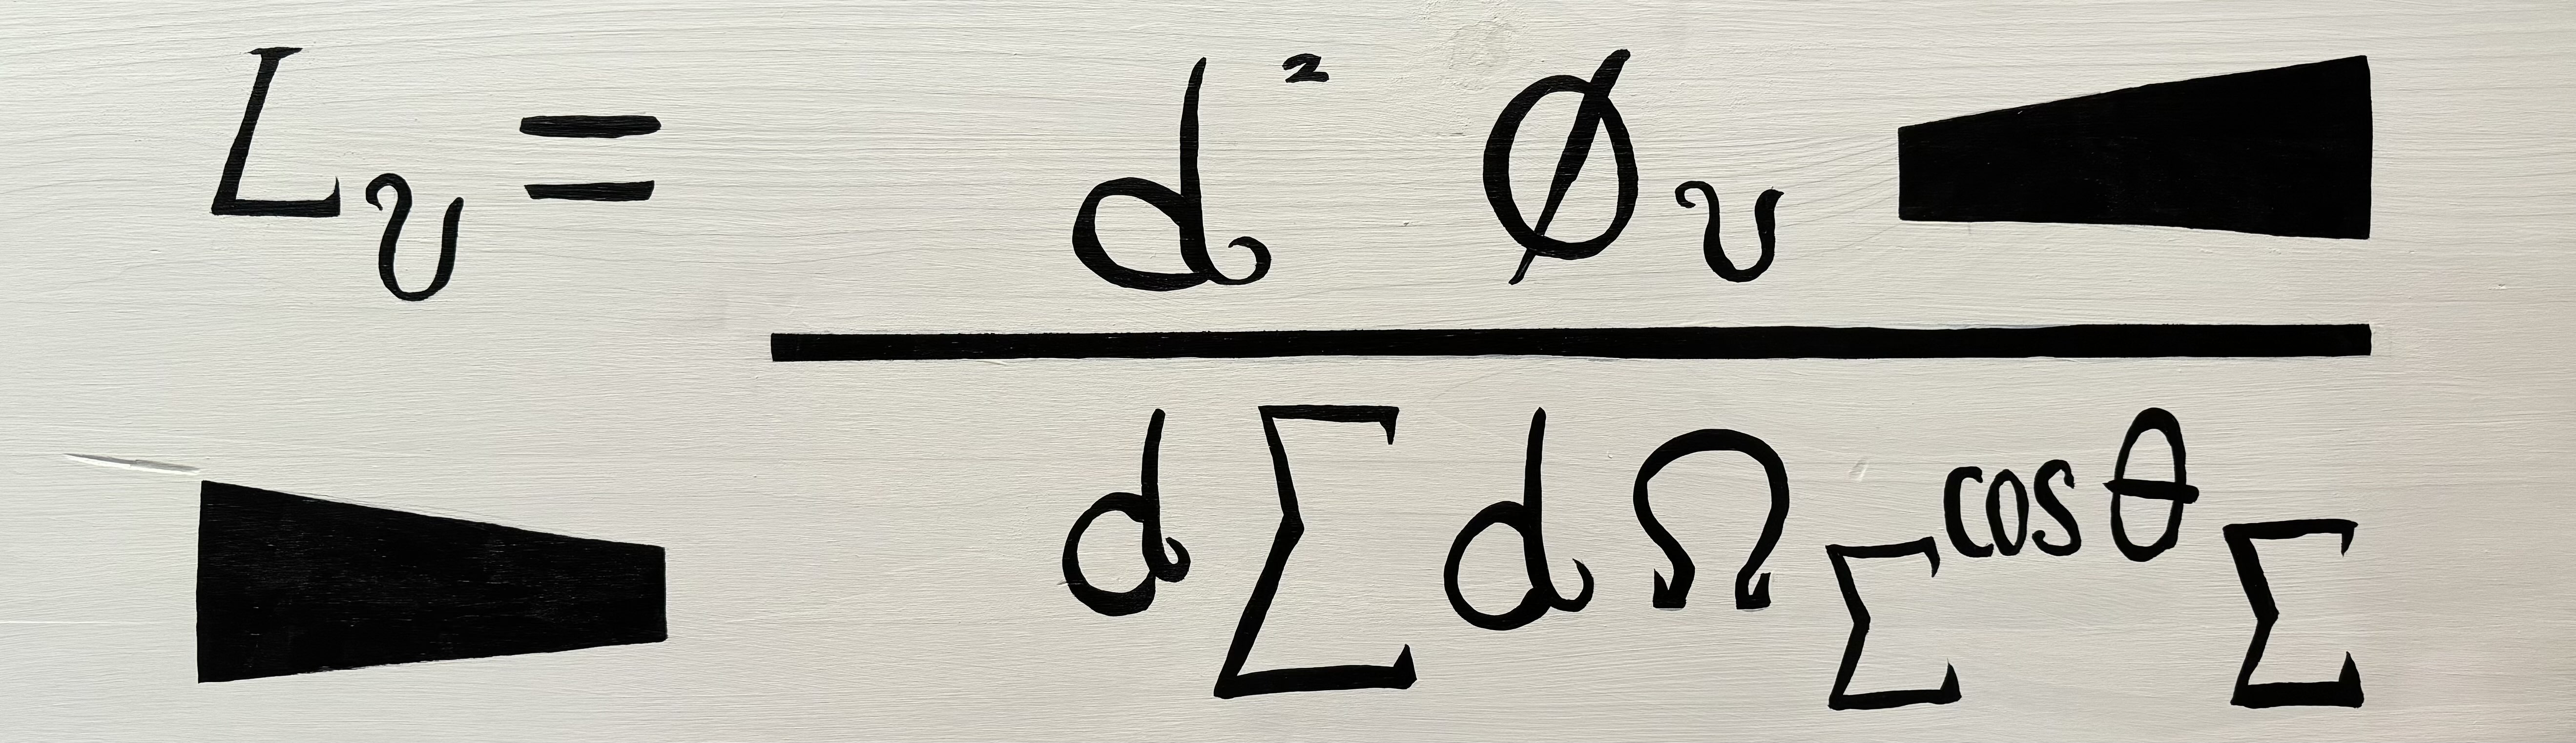 Lυ =
d² Φυ
dΣ dΩΣ cos θΣ